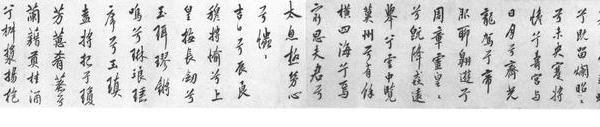 兮既留爛昭〻
兮未央蹇將
憺兮壽宮與
日月兮齊光
龍駕兮帝
服聊翱遊兮
周章靈皇〻
兮既降猋遠
舉兮雲中覽
冀州兮有餘
橫四海兮焉
窮思夫君兮
太息極勞心
兮𢥞〻
吉日兮辰良
穆將愉兮上
皇撫長劍兮
玉珥璆鏘
鳴兮琳琅瑤
席兮玉瑱
盍將把兮瓊
芳蕙肴蒸兮
蘭藉奠桂酒
兮椒漿揚枹